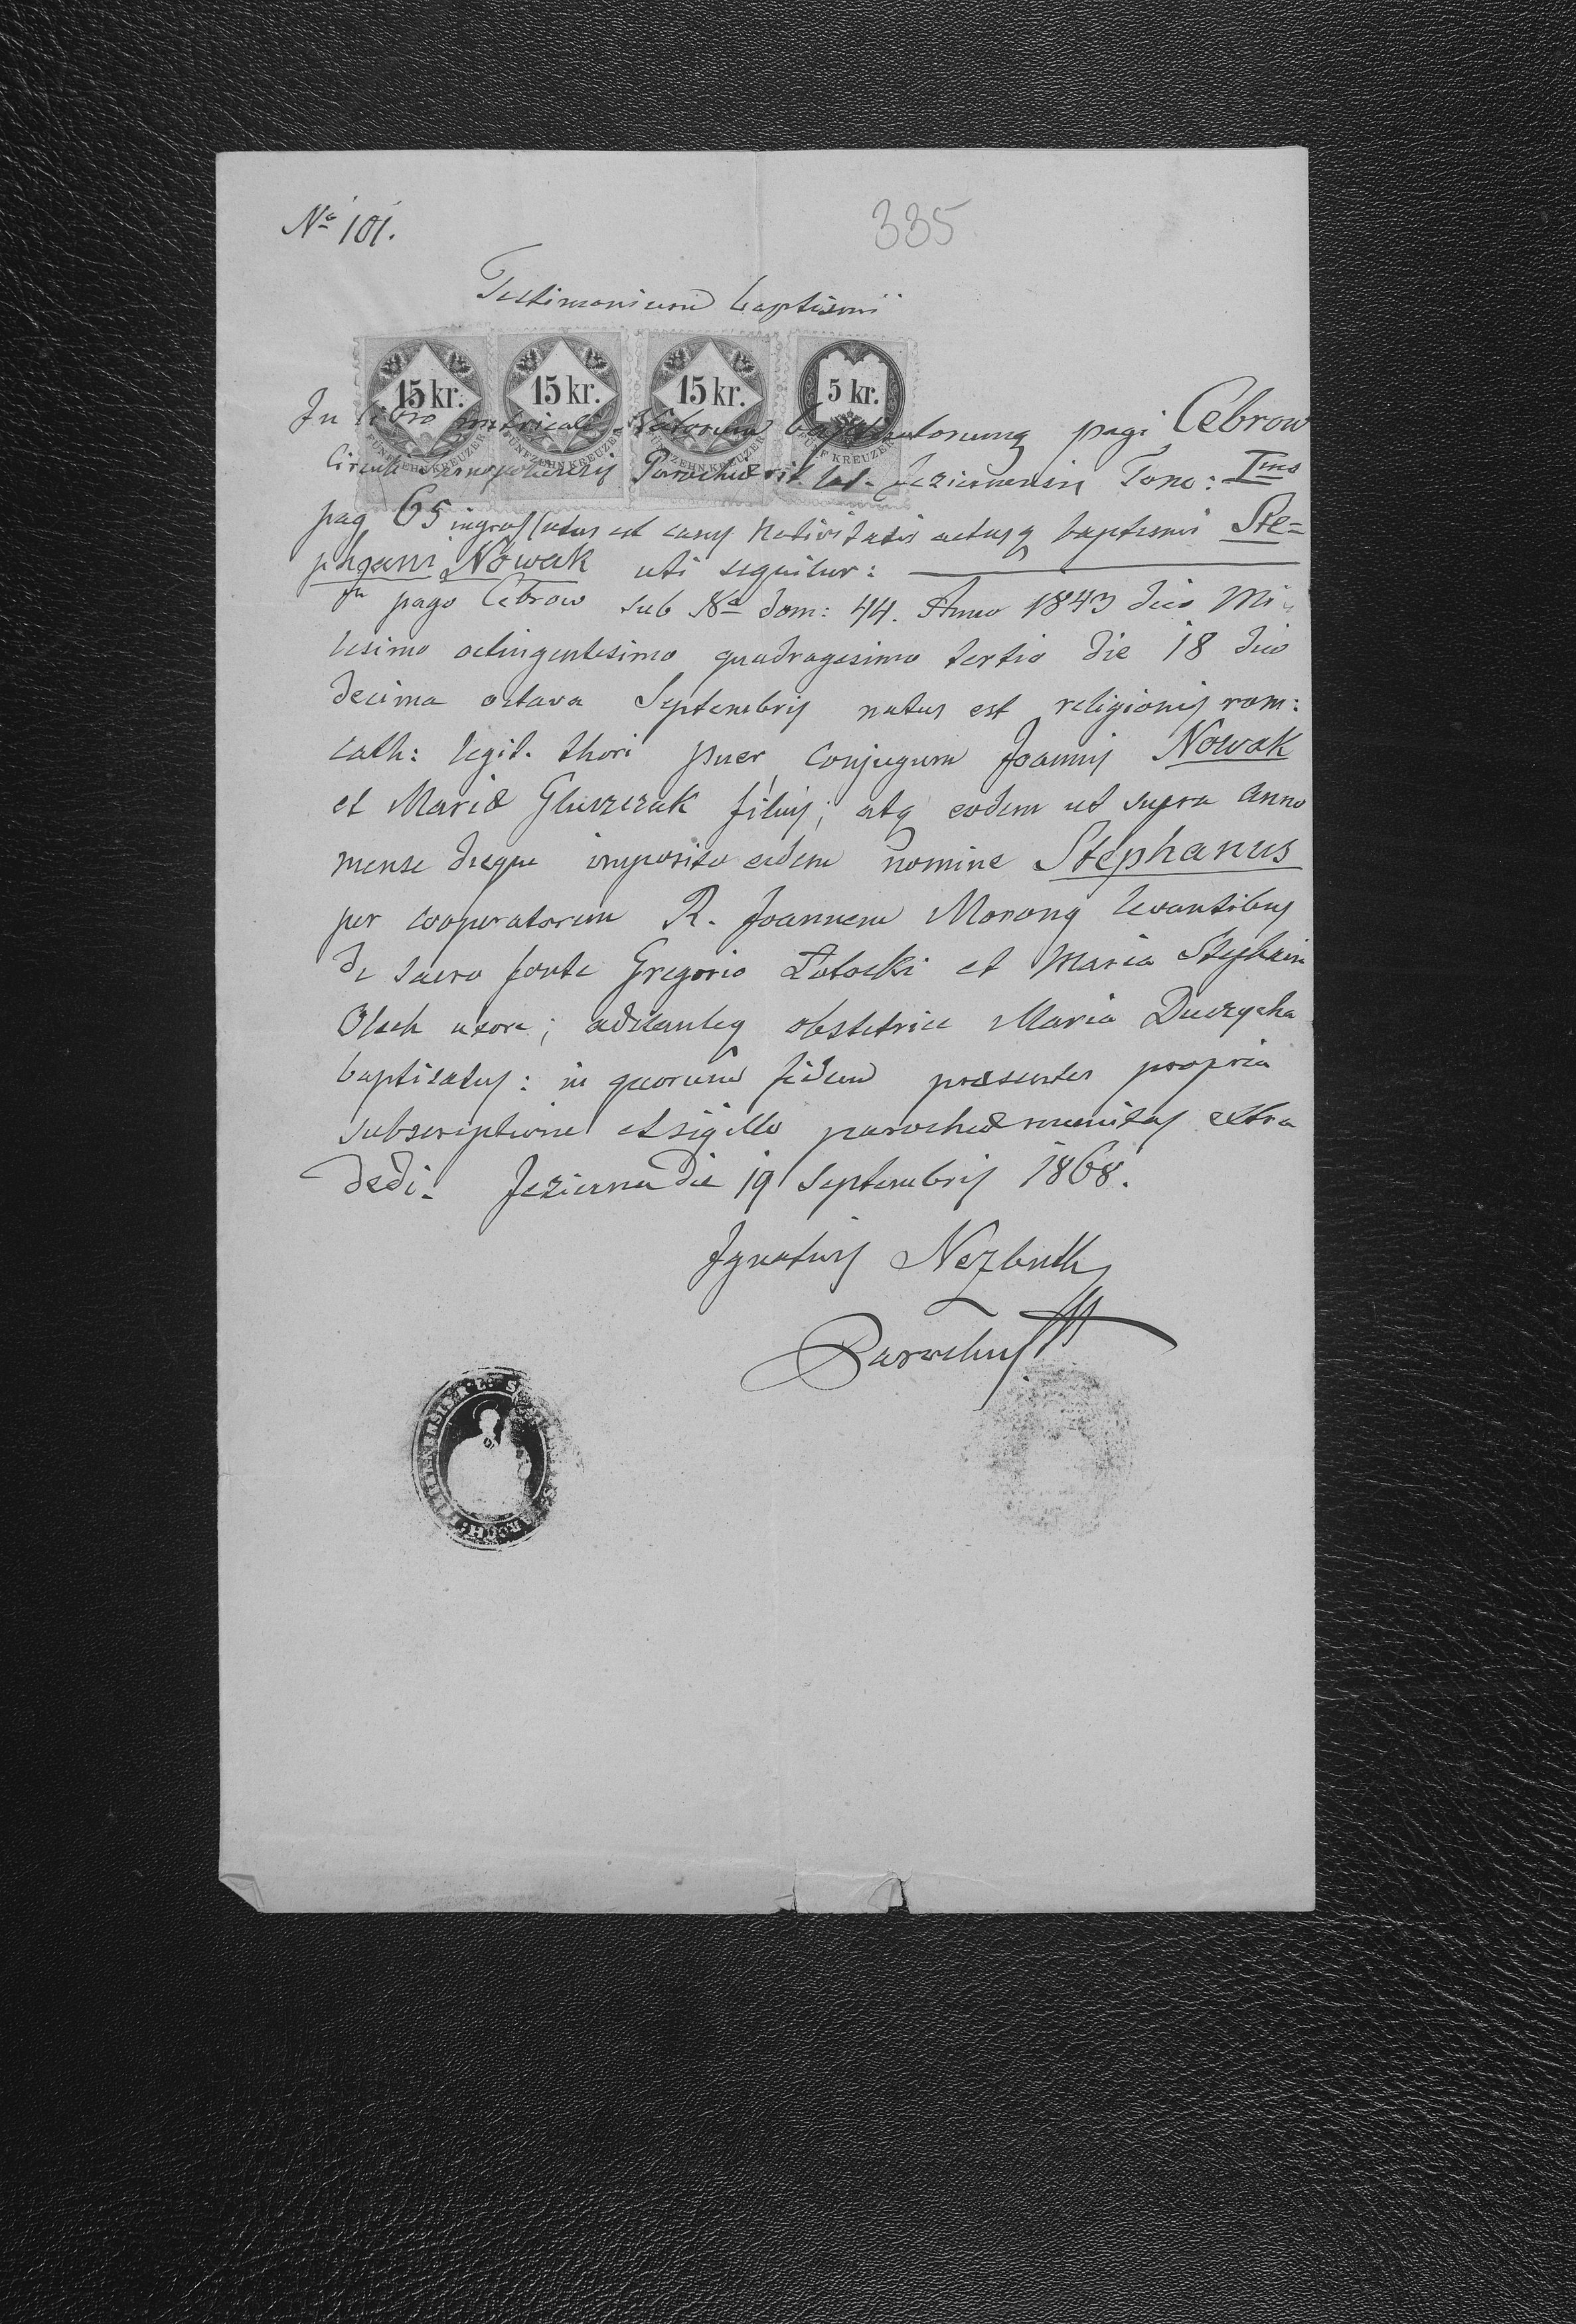 Nº 101.
335
Testimonium baptismi
15 kr. 15 kr. 15 kr. 5 kr.
FÜNFZEHN KREUZER FÜNFZEHN KREUZER FÜNFZEHN KREUZER FÜNF KREUZER
In libro metricali Natorum baptisatorumq pagi Cebrow
Circuli Tarnopoliensis Parochiæ rit. lat. Jeziernensis Tomo: Imo
pag 65 ingrossatus est casus nativitatis actusq baptismi Ste=
phani Nowak uti sequitur:
In pago Cebrow sub No dom: 44. Anno 1843 dico Mi
lesimo octingentesimo quadragesimo tertio die 18 dico
decima octava Septembris natus est religionis rom:
cath: legit. thori puer, conjugum Joannis Nowak
et Mariæ Gluszczak filius; atq eodem ut supra anno
mense dieque imposito eidem nomine Stephanus
per cooperatorem R. Joannem Morong levantibus
de sacro fonte Gregorio Łotocki et Maria Stephani
Olech uxore; adstanteq obstetrice Maria
baptisatus: in quorum fidem præsentes propria
subscriptione et sigillo parochiæ munitas extra
dedi. Jezierna die 19 Septembris 1868.
Ignatius
Parochus